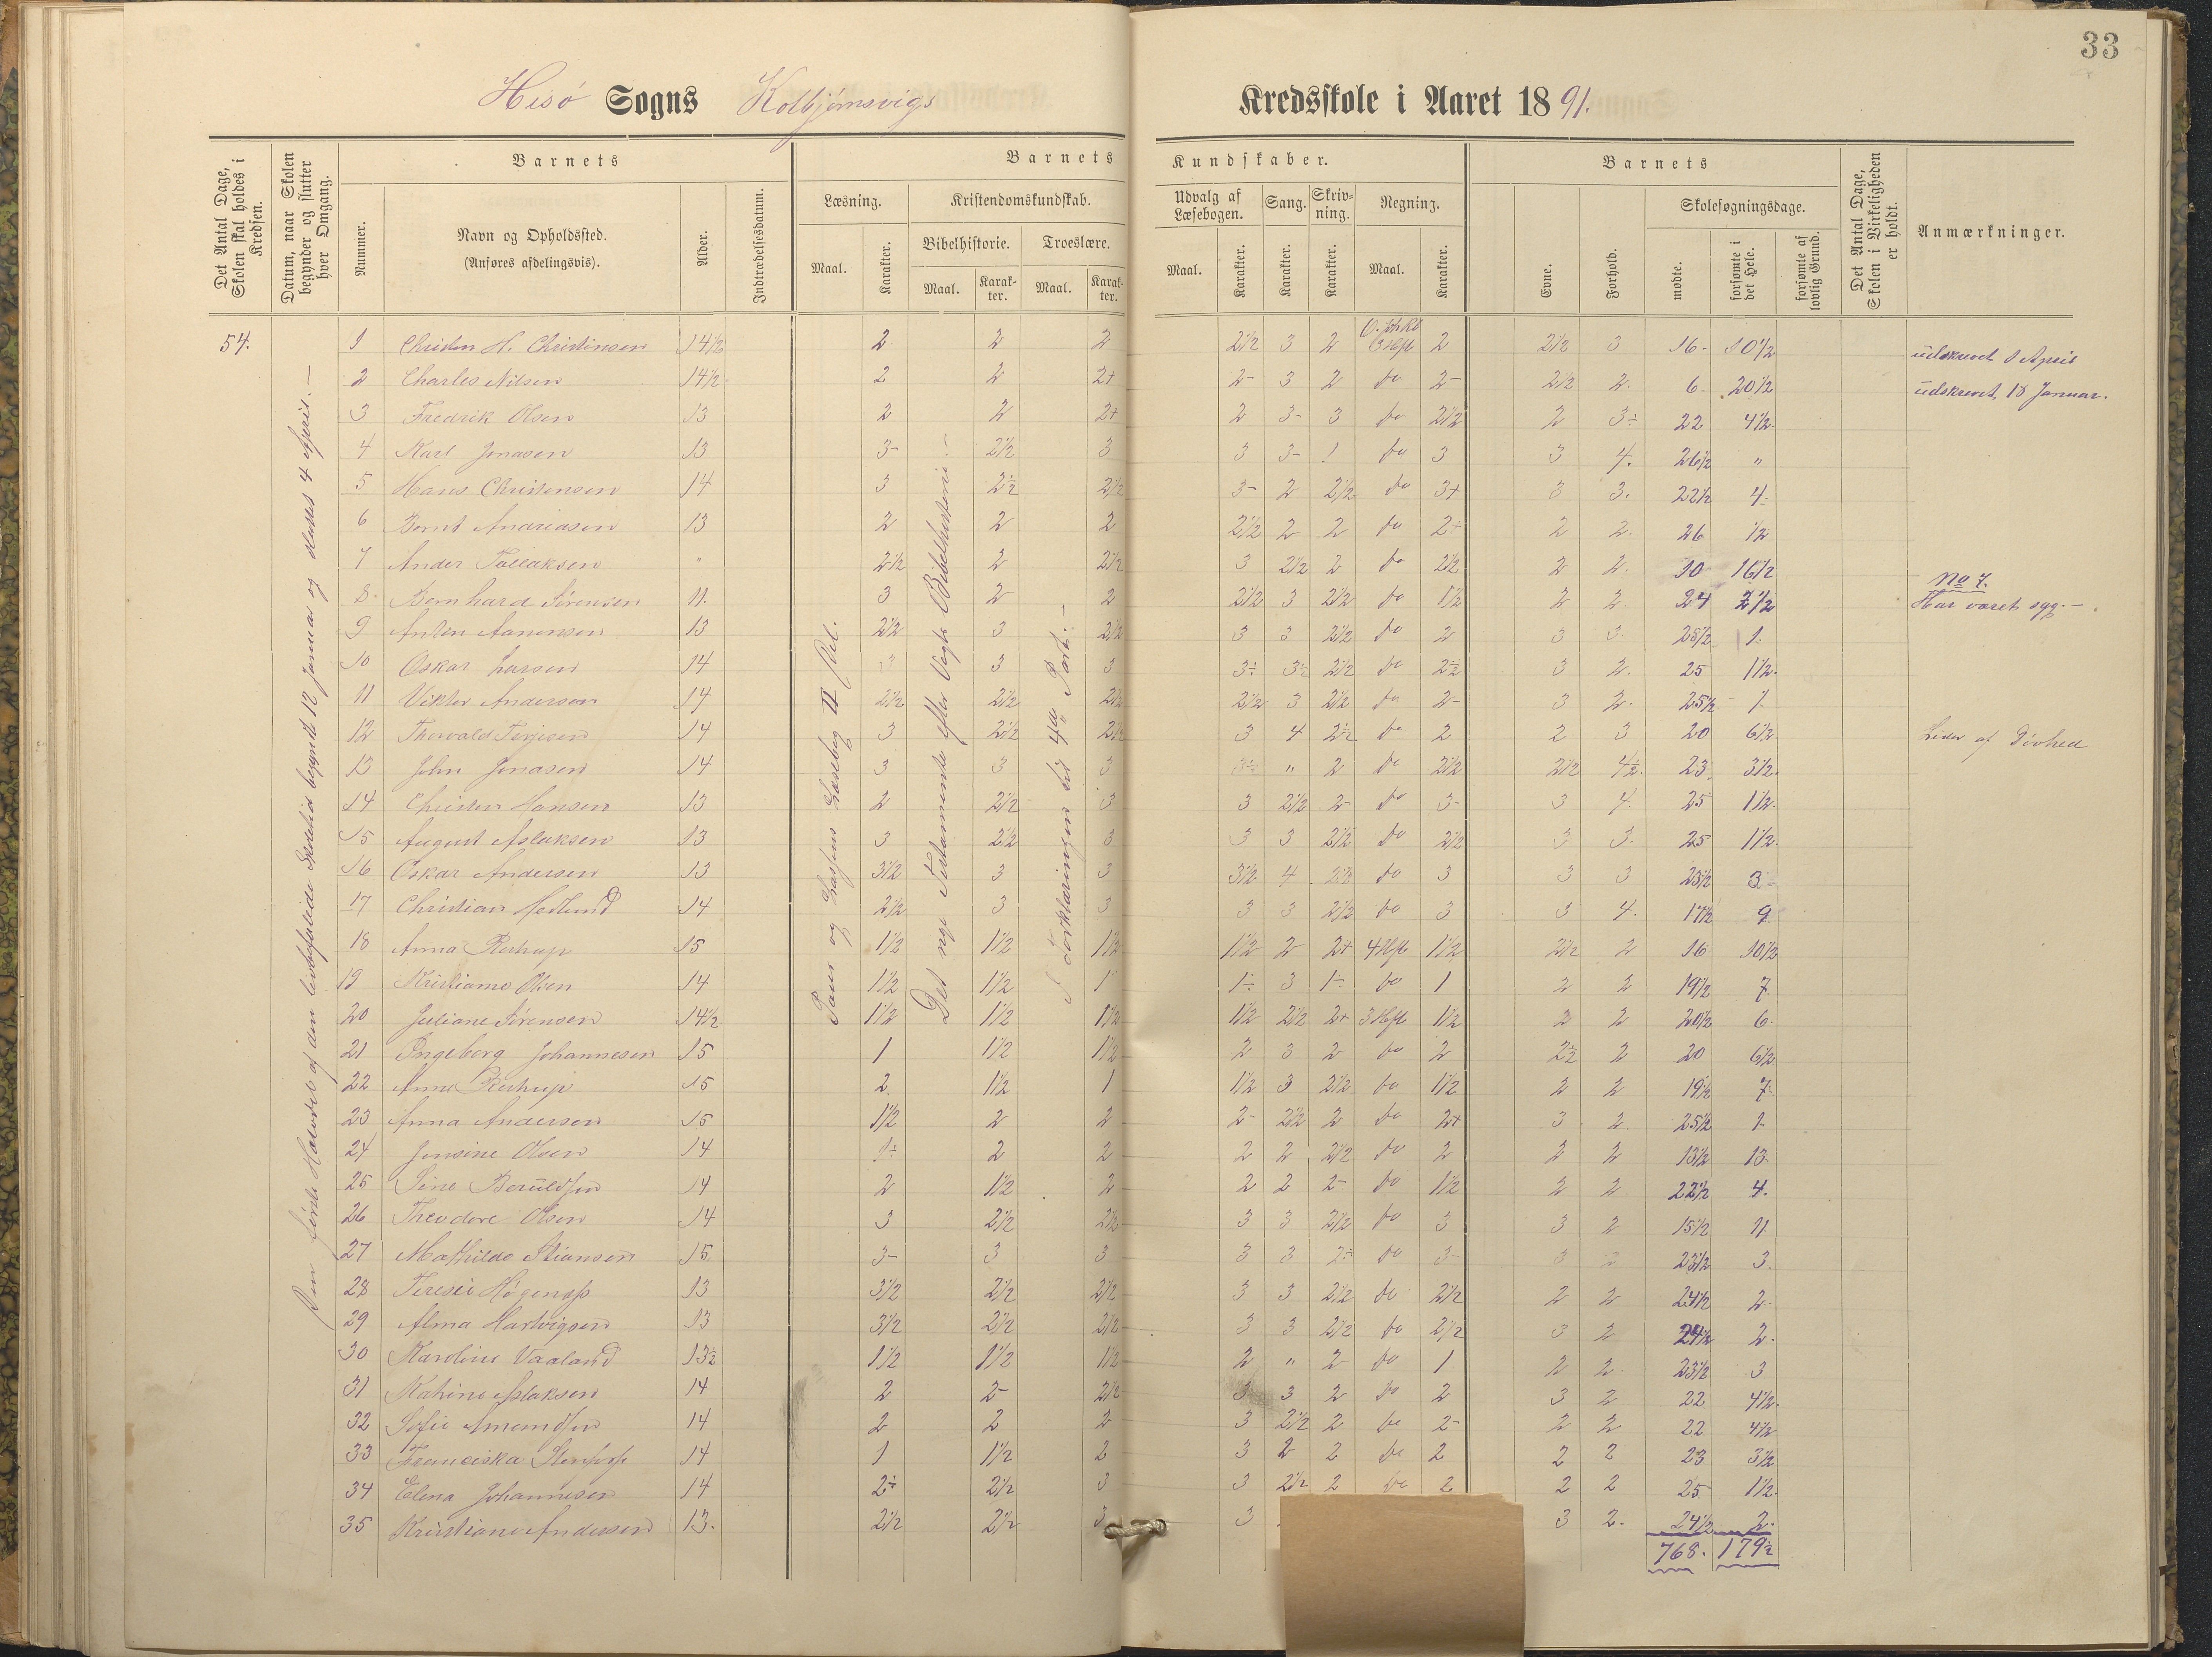 33
Hisø Sogns Kolbjørnsvigs Kredsskole i Aaret 1891.
Det Antal Dage, Skolen skal holdes i Kredsen.
Datum, naar Skolen begynder og slutter hver Omgang.
Barnets
Nummer.
Navn og Opholdssted.
(Anføres afdelingsvis).
Alder.
Indtrædelsesdatum.
Barnets Kundskaber.
Læsning.
Maal.
Karakter.
Kristendomskundskab.
Bibelhistorie.
Maal.
Karakter.
Troeslære.
Maal.
Karakter.
Udvalg af Læsebogen.
Maal.
Karakter.
Sang.
Karakter.
Skrivning.
Karakter.
Regning.
Maal.
Karakter.
Barnets
Evne.
Forhold.
Skolesøgningsdage.
mødte.
forsømte i det Hele.
forsømte af lovlig Grund.
Det Antal Dage, Skolen i Virkeligheden er holdt.
Anmærkninger.
54.
Den første Halvdel af den lovbefalede Skoletid begyndte 12 Januar og sluttes 4 April.—
Pauss og Lassens Læsebog II Del.
Det nye Testamente efter Vogts Bibelhistorie.—
Forklaringen til 4de Part.—
1 Christen H. Christinsen 14½ 2 2 2 2½ 3 2 3 Hft 2 2½ 3 16- 10½ udskrevet 1 April
2 Charles Nilsen 14½ 2 2 2+ 2- 3 2 do 2- 2½ 2. 6 20½ udskrevet 18 Januar.
3 Fredrik Olsen 13 2 2 2+ 2 3- 3 do 2½ 2 3÷ 22 4½
4 Karl Jonasen 13 3- 2½ 3 3 3- 1 do 3 3 4. 26½ "
5 Hans Christensen 14 3 2½ 2½ 3- 2 2½ do 3+ 3 3. 22½ 4
6 Bernt Andreasen 13 2 2 2 2½ 2 2 do 2+ 2 2. 26 ½
7 Ander Tallaksen " 2½ 2 2½ 3 2½ 2 do 2½ 2 2. 10 16½ No 7.
8 Bernhard Sørensen 11. 3 2 2 2½ 3 2½ do 1½ 2 2 24 2½ Har været syg.—
9 Anton Aanonsen 13 2½ 3 2½ 3 3 2½ do 2 3 3 25½ 1
10 Oskar Larsen 14 3 3 3 3÷ 3½ 2½ do 2½ 3 2. 25 1½
11 Viktor Anderson 14 2½ 2½ 2½ 2½ 3 2½ do 2- 3 2. 25½ 1
12 Thorvald Terjesen 14 3 2½ 2½ 3 4 2½ do 2 2 3 20 6½ Lider af Døvhed
13 John Jonasen 14 3 3 3 3÷ " 2 do 2½ 2½ 4½. 23 3½
14 Christen Hansen 13 2 2½ 3 3 2½ 2- do 3- 3 4 25 1½
15 August Aslaksen 13 3 2½ 3 3 3 2½ do 2½ 3 3. 25 1½
16 Oskar Andersen 13 3½ 3 3 3½ 4 2½ do 3 3 3 23½ 3
17 Christian Hedlund 14 2½ 3 3 3 3 2½ do 3 3 4. 17½ 9
18 Anna 15 1½ 1½ 1½ 1½ 2 2+ 4 Hft 1½ 2½ 2 16 10½
19 Kristiame Olsen 14 1½ 1½ 1 1÷ 3 1÷ do 1 2 2 19½ 7
20 Juliane Sørensen 14½ 1½ 1½ 1½ 1½ 2½ 2+ 3 Hft 1½ 2 2 20½ 6
21 Ingeborg Johannesen 15 1 1½ 1½ 2 3 2 do 2 2½ 2 20 6½
22 Anna 15 2 1½ 1 1½ 3 2½ do 1½ 2 2 19½ 7
23 Anna Andersen 15 1½ 2 2 2- 2½ 2 do 2+ 3 2 25½ 1
24 Jensine Olsen 14 1÷ 2 2 2 2 2½ do 2 2 2 13½ 13
25 Sine Beruldsen 14 2 1½ 2 2 2 2- do 1½ 2 2 22½ 4.
26 Theodore Olsen 14 3 2½ 2½ 3 3 2½ do 3 3 2 15½ 11
27 Mathilde Stiansen 15 3- 3 3 3 3 2÷ do 3- 3 2 23½ 3.
28 Terese 13 3½ 2½ 2½ 3 3 2½ do 2½ 2 2 24½ 2
29 Alma Hartvigsen 13 3½ 2½ 2½ 3 3 2½ do 2½ 3 2 24½ 2.
30 Karoline Vaaland 13½ 1½ 1½ 1½ 2 " 2 do 1 2 2. 23½ 3
31 Kahine Aslaksen 14 2 2- 2½ 3 3 2 do 2 3 2 22 4½
32 Sofie Amundsen 14 2 2 2 3 2½ 2 do 2- 2 2 22 4½
33 Franciska 14 1 1½ 2 3 2 2 do 2 2 2 23 3½
34 Elena Johannesen 14 2÷ 2½ 3 3 2½ 2 do 2 2 2 25 1½
35 Kristiane Andersen 13. 2½ 2½ 3 3 3 2. 24½ 2.
768. 179½